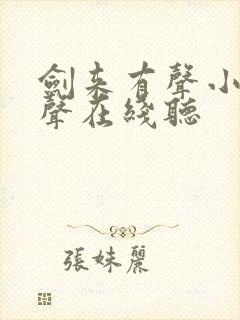 劍来有聲小
聲在綫聽
張妹麗